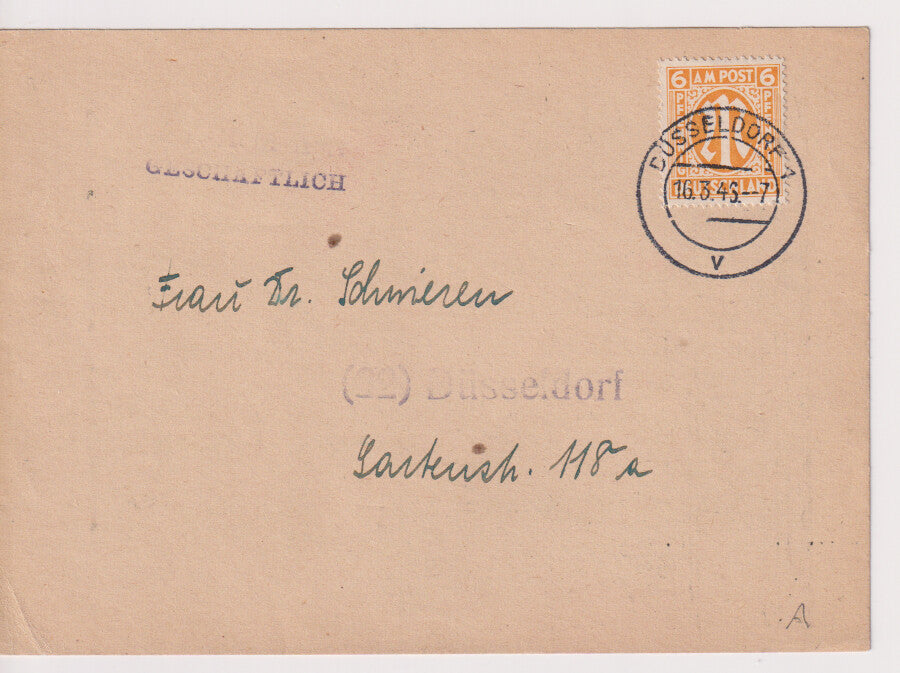 6 AM POST 6
PF PF
DEUTSCHLAND
DÜSSELDORF 1
16.3.46.--7
v
GESCHÄFTLICH
Frau Dr. Schmieren
(22) Düsseldorf
Gartenstr. 118 a
A